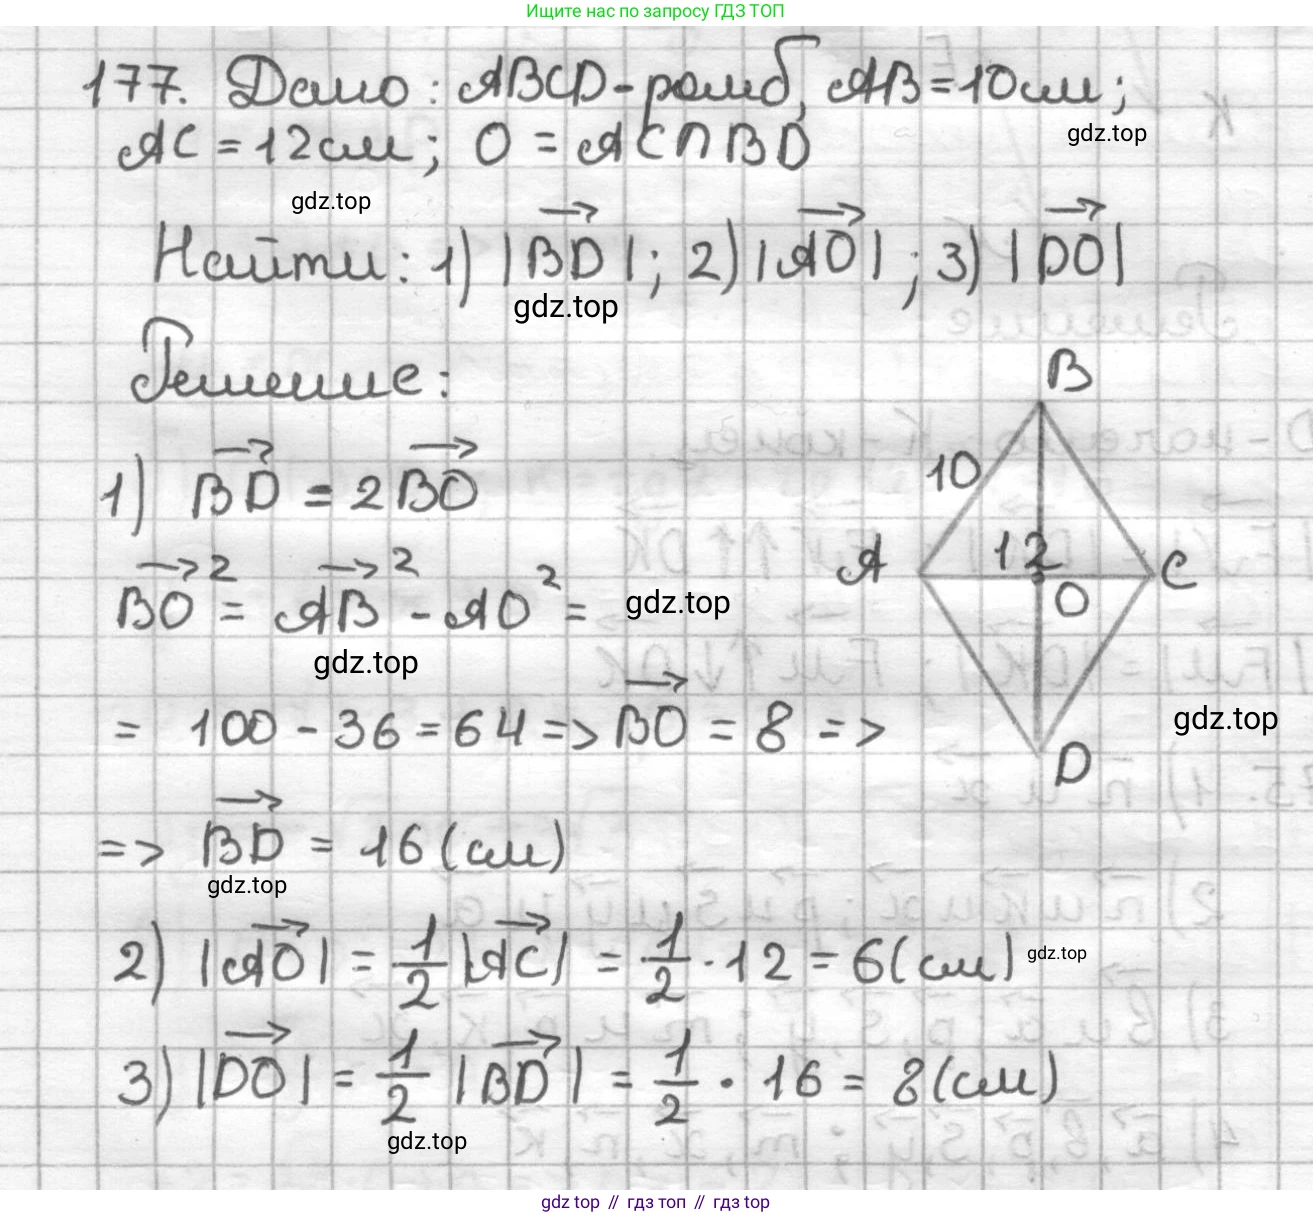 Ищите нас по запросу ГДЗ ТОП
177. Дано: ABCD-ромб, AB=10см;
gdz.top
AC=12см; O = AC∩BD
gdz.top
Найти: 1) |BD→|; 2) |AO→|; 3) |DO→|
gdz.top
Решение:
1) BD→ = 2BO→
BO→² = AB→² - AO² =
gdz.top
gdz.top
= 100 - 36 = 64 => BO→ = 8 =>
=> BD→ = 16 (см)
gdz.top
B
10
A
12
C
O
gdz.top
D
2) |AO→| = 1/2 |AC→| = 1/2 · 12 = 6 (см)
gdz.top
3) |DO→| = 1/2 |BD→| = 1/2 · 16 = 8 (см)
gdz.top
gdz top // гдз топ // gdz.top